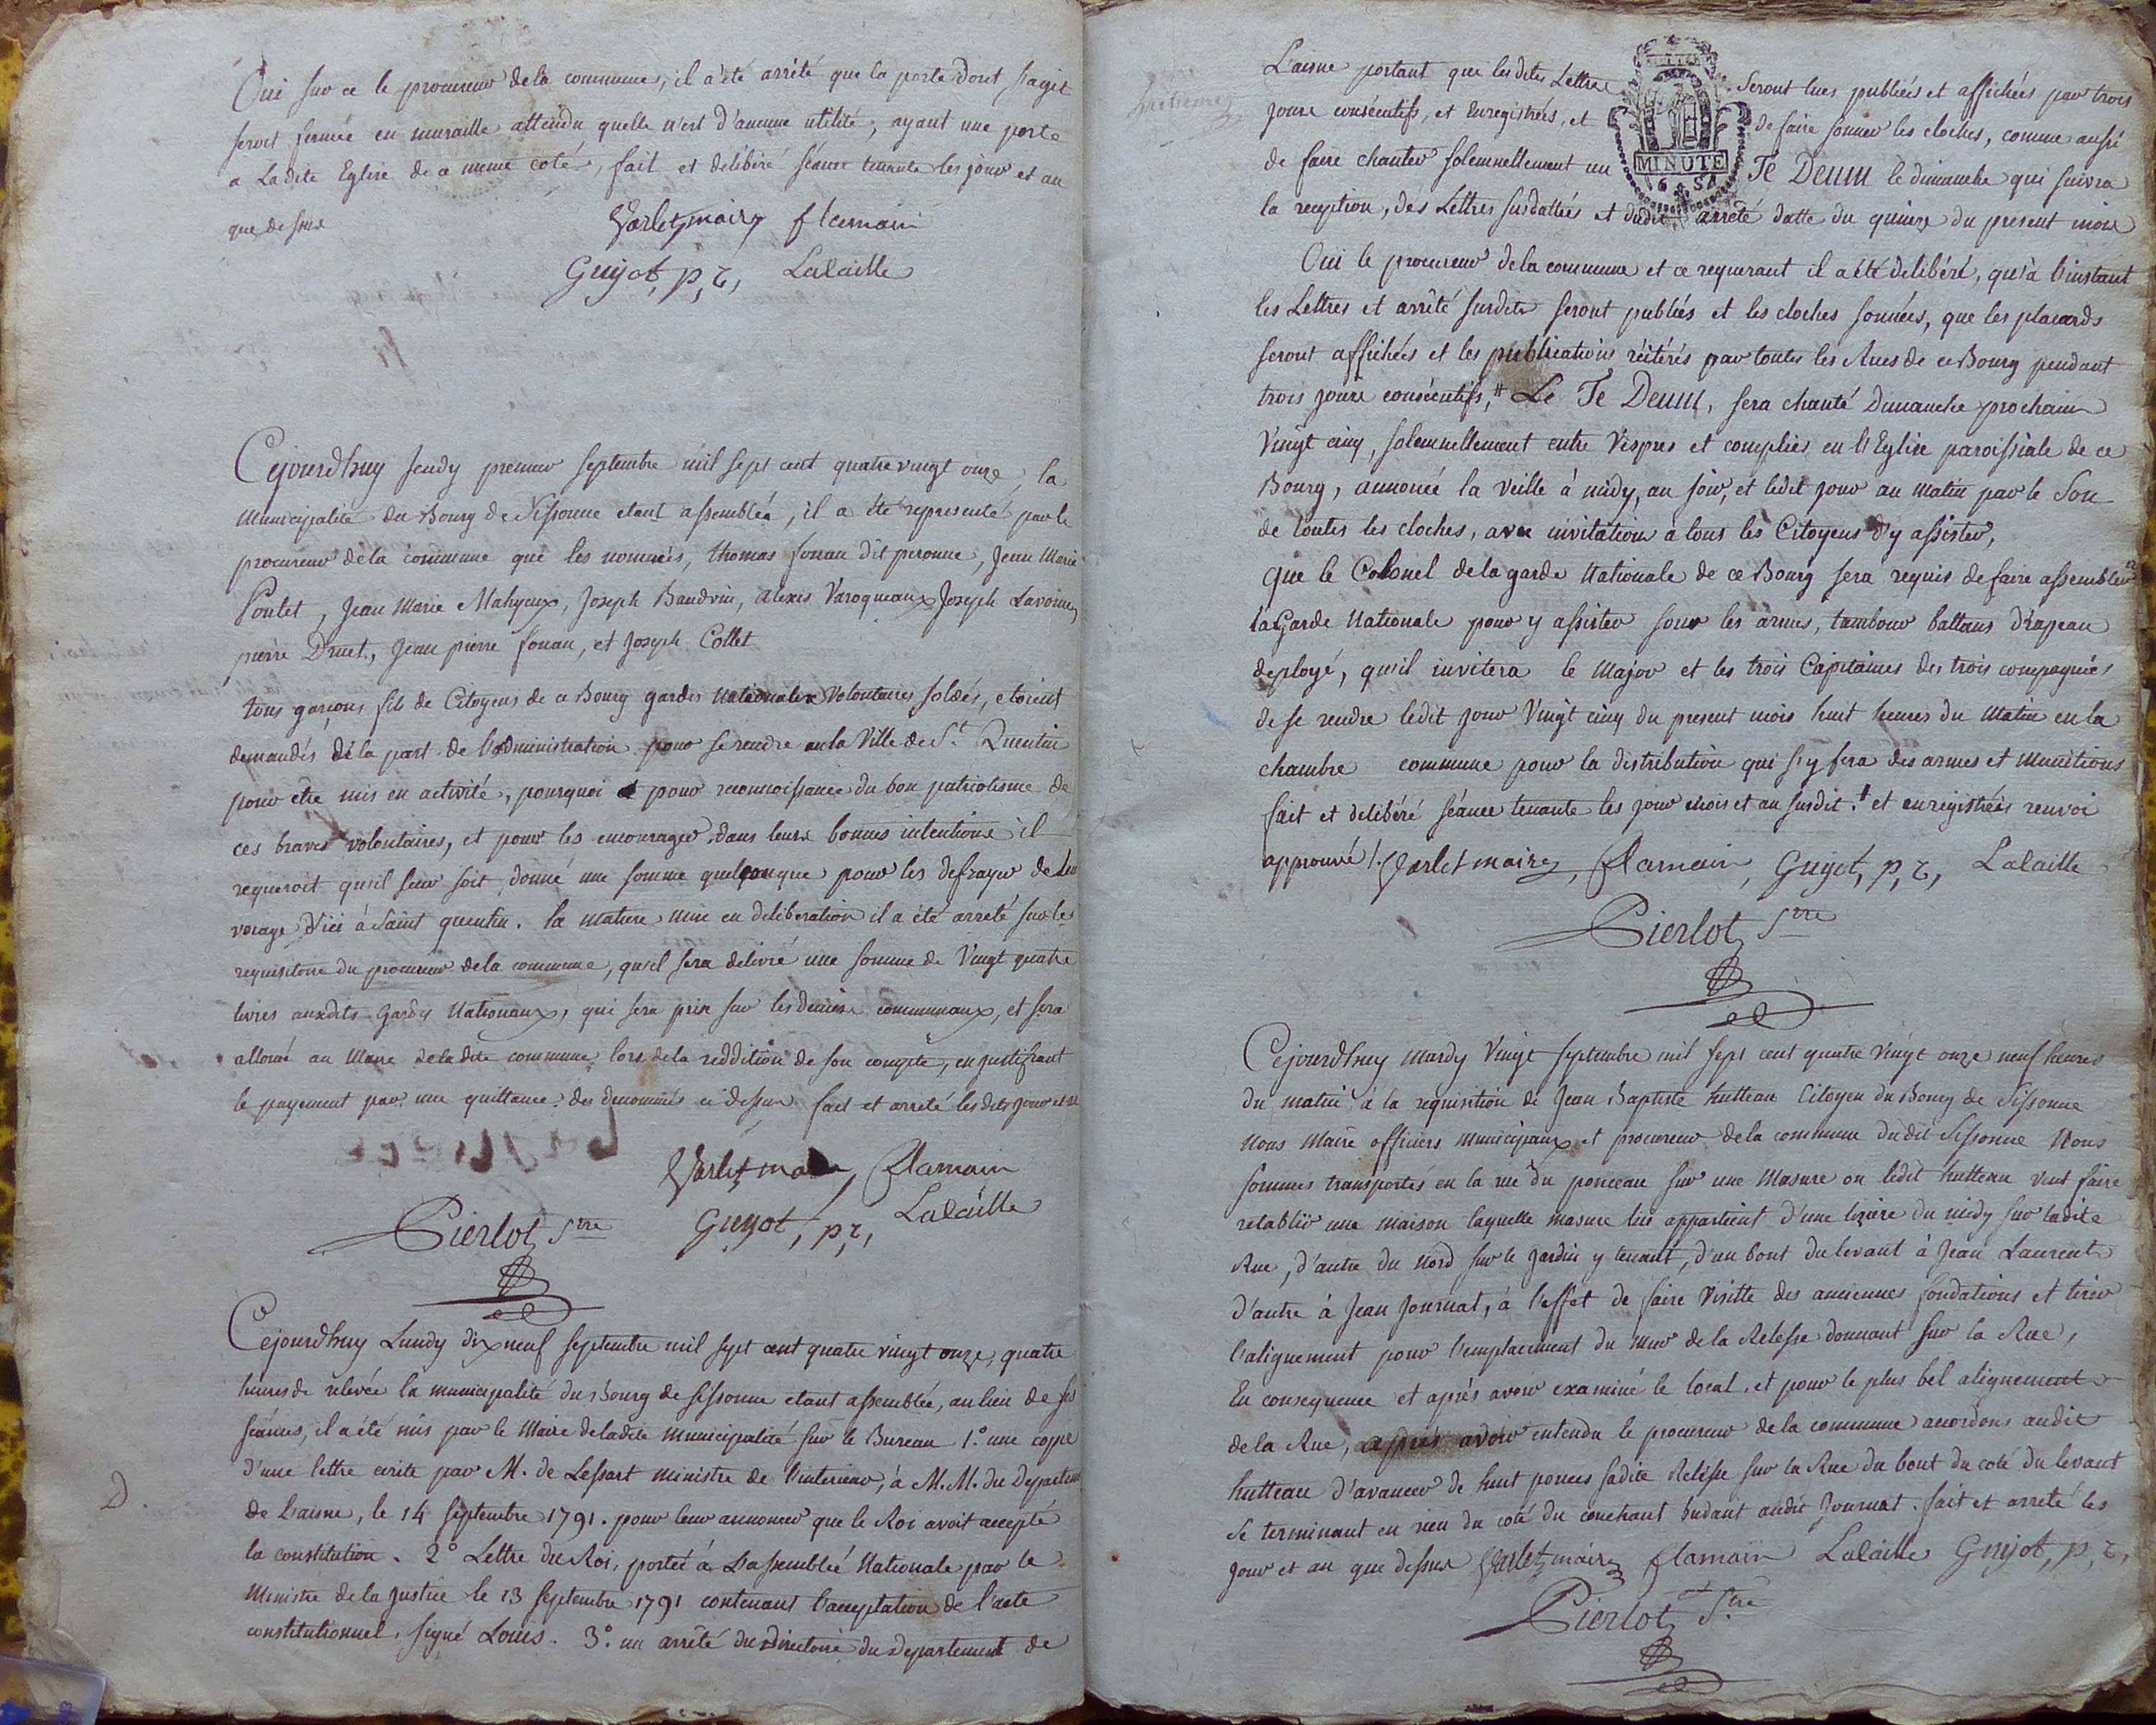 Oui sur ce le procureur de la commune, il a été arrété que la porte dont s'agit
seroit fermée en muraille attendu quelle n'est d'aucune utilité, ayant une porte
a Ladite Eglise de ce meme coté, fait et deliberé séance tenante les jour et an
que dessus
Varlet maire flamain
Guyot, p, c, Lalaille
Cejourdhuy Jeudy premier septembre mil sept cent quatre vingt onze, la
municipalité du Bourg de Sissonne etant assemblée, il a été representé par le
procureur de la commune que les nommés, thomas fouan dit peronne, Jean Marie
Poulet, Jean Marie Mahyeux, Joseph Baudvin, alexis Varoqueaux Joseph Lavoine,
pierre Druet, Jean pierre fouan, et Joseph Collet
tous garçons fils de Citoyens de ce Bourg gardes Nationales Volontaires soldés, etoient
demandés de la part de l'administration pour se rendre en la Ville de St. Quentin
pour être mis en activité, pourquoi et pour reconnoissance du bon patriotisme de
ces braves volontaires, et pour les encourager dans leurs bonnes intentions il
requeroit qu'il leur soit donné une somme quelconque pour les defrayer de leur
voiage d'ici à Saint quentin. la matiere mise en deliberation il a été arreté sur le
requisitoire du procureur de la commune, qu'il sera delivré une somme de Vingt quatre
livres auxdits Gardes Nationaux, qui sera prise sur les deniers communaux, et sera
alloué au Maire de ladite commune lors de la reddition de son compte, en justifiant
le payement par une quittance des denommés ci dessus fait et arreté lesdits jour et an
Varlet maire, flamain
Pierlot Sre Guyot, p, c, Lalaille
Cejourdhuy Lundy dix neuf septembre mil sept cent quatre vingt onze, quatre
heures de relevée la municipalité du Bourg de Sissonne etant assemblée, au lieu de ses
séances, il a été mis par le Maire de ladite municipalité sur le Bureau 1.° une copie
d'une lettre ecrite par M. de Lessart ministre de l'interieur, à M.M. du Departem
D.
de Laisne, le 14 septembre 1791. pour leur annoncer que le Roi avoit accepté
la constitution. 2° Lettre du Roi, portée à L'assemblée Nationale par le
Ministre de la Justice le 13 septembre 1791 contenant l'acceptation de l'acte
constitutionnel, signé Louis. 3.° un arrêté du Directoire du Departement de
L'aisne portant que lesdites Lettres seront lues publiées et affichées par trois
jours consécutifs, et Enregistrées, et de faire sonner les cloches, comme aussi
de faire chanter solemnellement un Te Deum le dimanche qui suivra
MINUTE
la reception, des Lettres susdattées et dudit arreté datté du quinze du present mois
Oui le procureur de la commune et ce requerant il a été delibéré, qu'à l'instant
les Lettres et arrêté susdits seront publiés et les cloches sonnées, que les placards
seront affichées et les publications réitérés par toutes les Rues de ce Bourg pendant
trois jours consécutifs,# Le Te Deum, sera chanté Dimanche prochain
Vingt cinq, solemnellement entre Vespres et complies en l'Eglise paroissiale de ce
Bourg, annoncé la Veille à midy, au soir, et ledit jour au Matin par le Son
de toutes les cloches, avec invitation a tous les Citoyens d'y assister,
que le Colonel de la garde Nationale de ce Bourg sera requis de faire assembler
la Garde Nationale pour y assister sous les armes, tambour battans Drapeau
deployé, qu'il invitera le Major et les trois Capitaines des trois compagnies
de se rendre ledit jour Vingt cinq du present mois huit heures du Matin en la
chambre commune pour la distribution qui s'y fera des armes et Munitions
fait et deliberé séance tenante les jour mois et an susdit.# et enregistrées renvoi
approuvé/. Varlet maire, flamain, Guyot, p, c, Lalaille
Pierlot Sre
Cejourdhuy mardy Vingt septembre mil sept cent quatre Vingt onze neuf heures
du matin à la requisition de Jean Baptiste hutteau Citoyen du Bourg de Sissonne
Nous Maire officiers municipaux et procureur de la commune dudit Sissonne Nous
sommes transportés en la rue du ponceau sur une Masure ou ledit hutteau veut faire
retablir une maison laquelle masure lui appartient d'une liziere du midy sur ladite
Rue, d'autre du Nord sur le Jardin y tenant, d'un bout du levant à Jean Laurent
d'autre à Jean Journat, à l'effet de faire Visitte des anciennes fondations et tirer
l'alignement pour l'emplacement du mur de la Relesse donnant sur la Rue,
En consequence et après avoir examiné le local, et pour le plus bel alignement
de la Rue, après avoir entendu le procureur de la commune accordons audit
hutteau d'avancer de huit pouces sadite Relesse sur la Rue du bout du coté du levant
se terminant en rien du coté du couchant budant audit Journat. fait et arreté les
jour et an que dessus Varlet maire flamain Lalaille Guyot, p, c,
Pierlot Sre